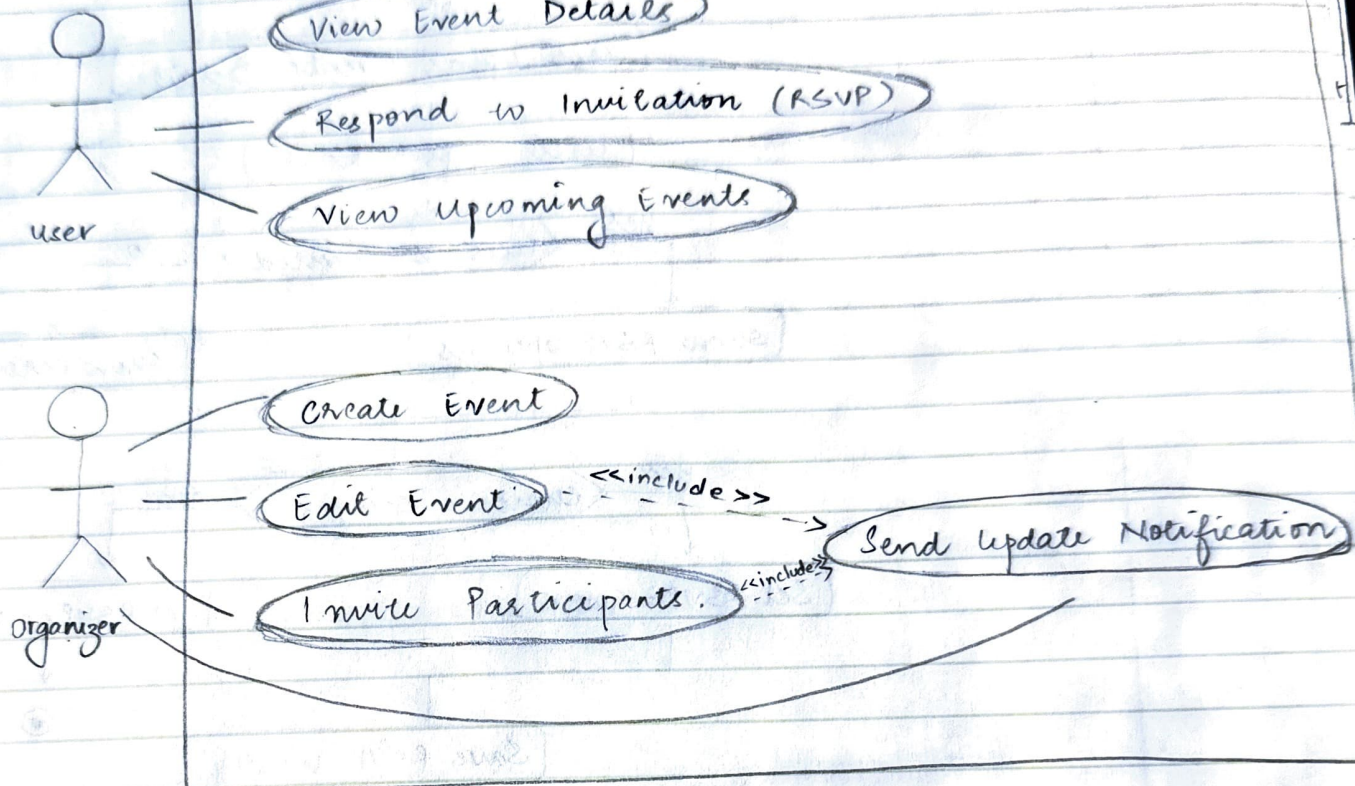 View Event Details
Respond to Invitation (RSVP)
View Upcoming Events
user
Create Event
Edit Event
<<include>>
Send Update Notification
<<include>>
Invite Participants.
organizer